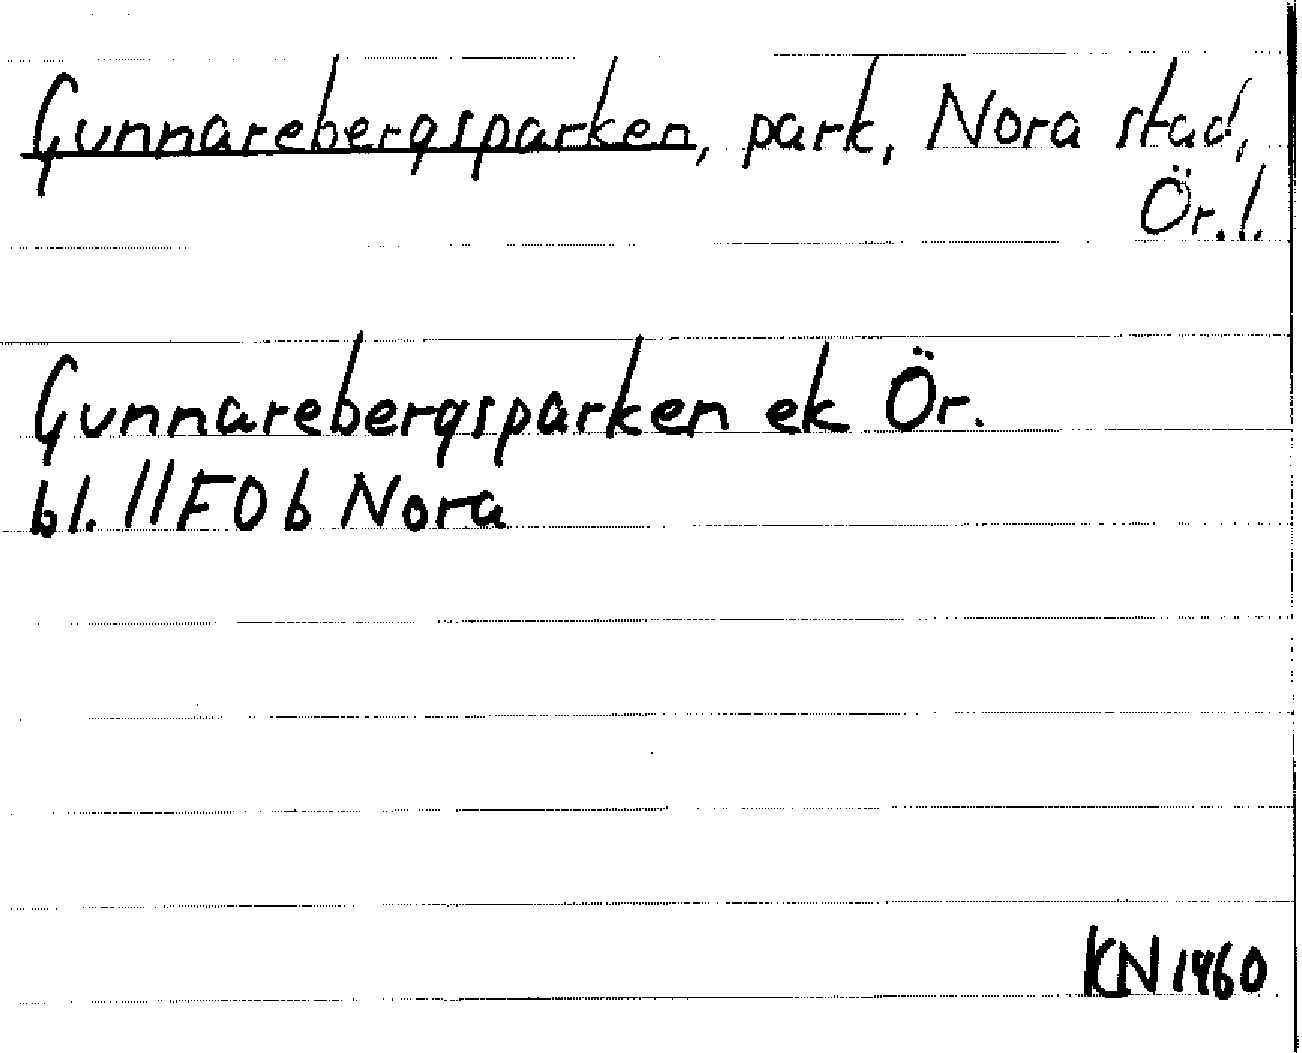 Gunnarebergsparken, park, Nora stad,
Ör. l.
Gunnarebergsparken ek Ör.
bl. 11F0b Nora
KN 1960